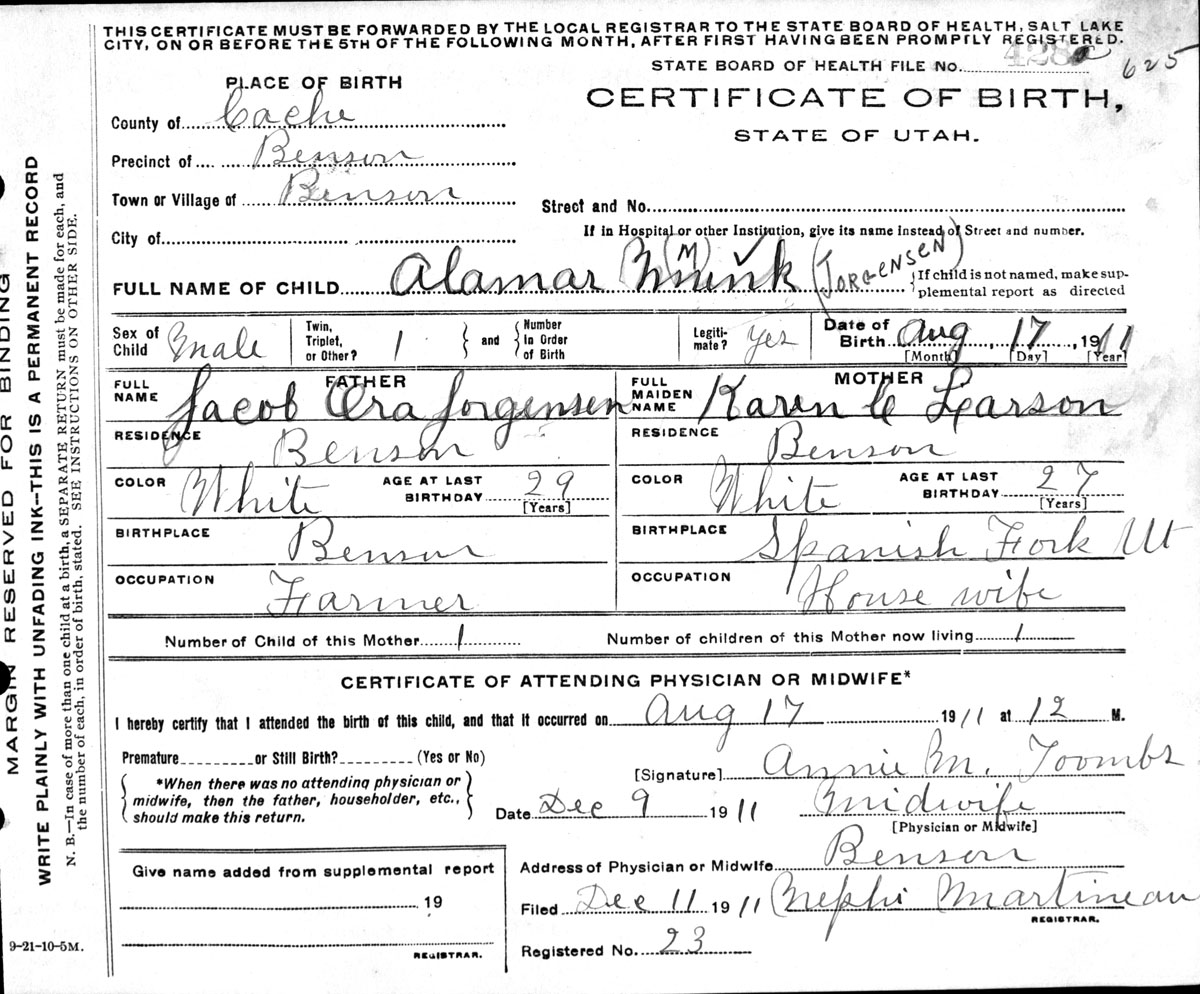 THIS CERTIFICATE MUST BE FORWARDED BY THE LOCAL REGISTRAR TO THE STATE BOARD OF HEALTH, SALT LAKE
CITY, ON OR BEFORE THE 5TH OF THE FOLLOWING MONTH, AFTER FIRST HAVING BEEN PROMPTLY REGISTERED.
STATE BOARD OF HEALTH FILE No. 428 625
PLACE OF BIRTH
CERTIFICATE OF BIRTH,
STATE OF UTAH.
County of Cache
Precinct of Benson
Town or Village of Benson
Street and No.
City of
If in Hospital or other Institution, give its name instead of Street and number.
FULL NAME OF CHILD Alamar Munk (M) (JORGENSEN)
If child is not named, make sup-
plemental report as directed
Sex of Child Male
Twin, Triplet, or Other? 1
and
Number In Order of Birth
Legiti-mate? Yes
Date of Birth Aug 17, 1911
[Month] [Day] [Year]
FATHER
FULL NAME Jacob Ora Jorgensen
MOTHER
FULL MAIDEN NAME Karen C Larson
RESIDENCE Benson
RESIDENCE Benson
COLOR White AGE AT LAST BIRTHDAY 29 [Years]
COLOR White AGE AT LAST BIRTHDAY 27 [Years]
BIRTHPLACE Benson
BIRTHPLACE Spanish Fork Ut
OCCUPATION Farmer
OCCUPATION House wife
Number of Child of this Mother 1
Number of children of this Mother now living 1
CERTIFICATE OF ATTENDING PHYSICIAN OR MIDWIFE*
I hereby certify that I attended the birth of this child, and that it occurred on Aug 17 1911 at 12 M.
Premature or Still Birth? (Yes or No)
*When there was no attending physician or
midwife, then the father, householder, etc.,
should make this return.
[Signature] Annie M. Toombs
Date Dec 9 1911 Midwife
[Physician or Midwife]
Give name added from supplemental report
19
REGISTRAR.
Address of Physician or Midwife Benson
Filed Dec 11 1911 Nephi Martineau
REGISTRAR.
Registered No. 23
9-21-10-5M.
MARGIN RESERVED FOR BINDING
WRITE PLAINLY WITH UNFADING INK--THIS IS A PERMANENT RECORD
N. B.—In case of more than one child at a birth, a SEPARATE RETURN must be made for each, and
the number of each, in order of birth, stated. SEE INSTRUCTIONS ON OTHER SIDE.